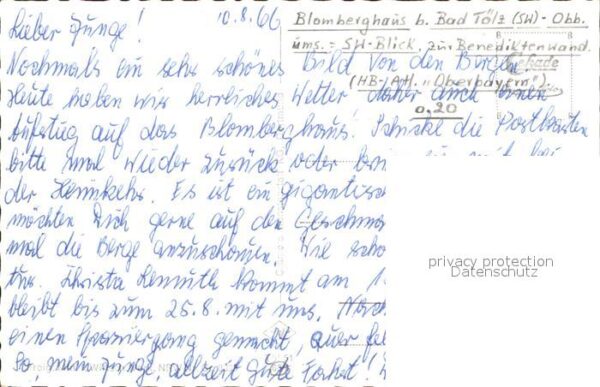 Lieber Junge! 10.8.66
Blomberghaus b. Bad Tölz (SW) - Obb.
ums. = SW-Blick, zur Benediktenwand.
Nochmals ein sehr schönes Bild von den Bergen
(HB-AH. "Oberbayern")
Heute haben wir herrliches Wetter daher auch einen
0,20
Aufstieg auf das Blomberghaus! Schicke die Postkarten
bitte mal wieder zurück oder
der Heimkehr. Es ist ein gigantisch
möchten Dich gerne auf den Geschma
mal die Berge anzuschauen. Wie scho
privacy protection
Datenschutz
Christa kommt am
bleibt bis zum 25.8. mit uns.
einen Spaziergang gemacht, quer
So, mein Junge, allzeit gute Fahrt!